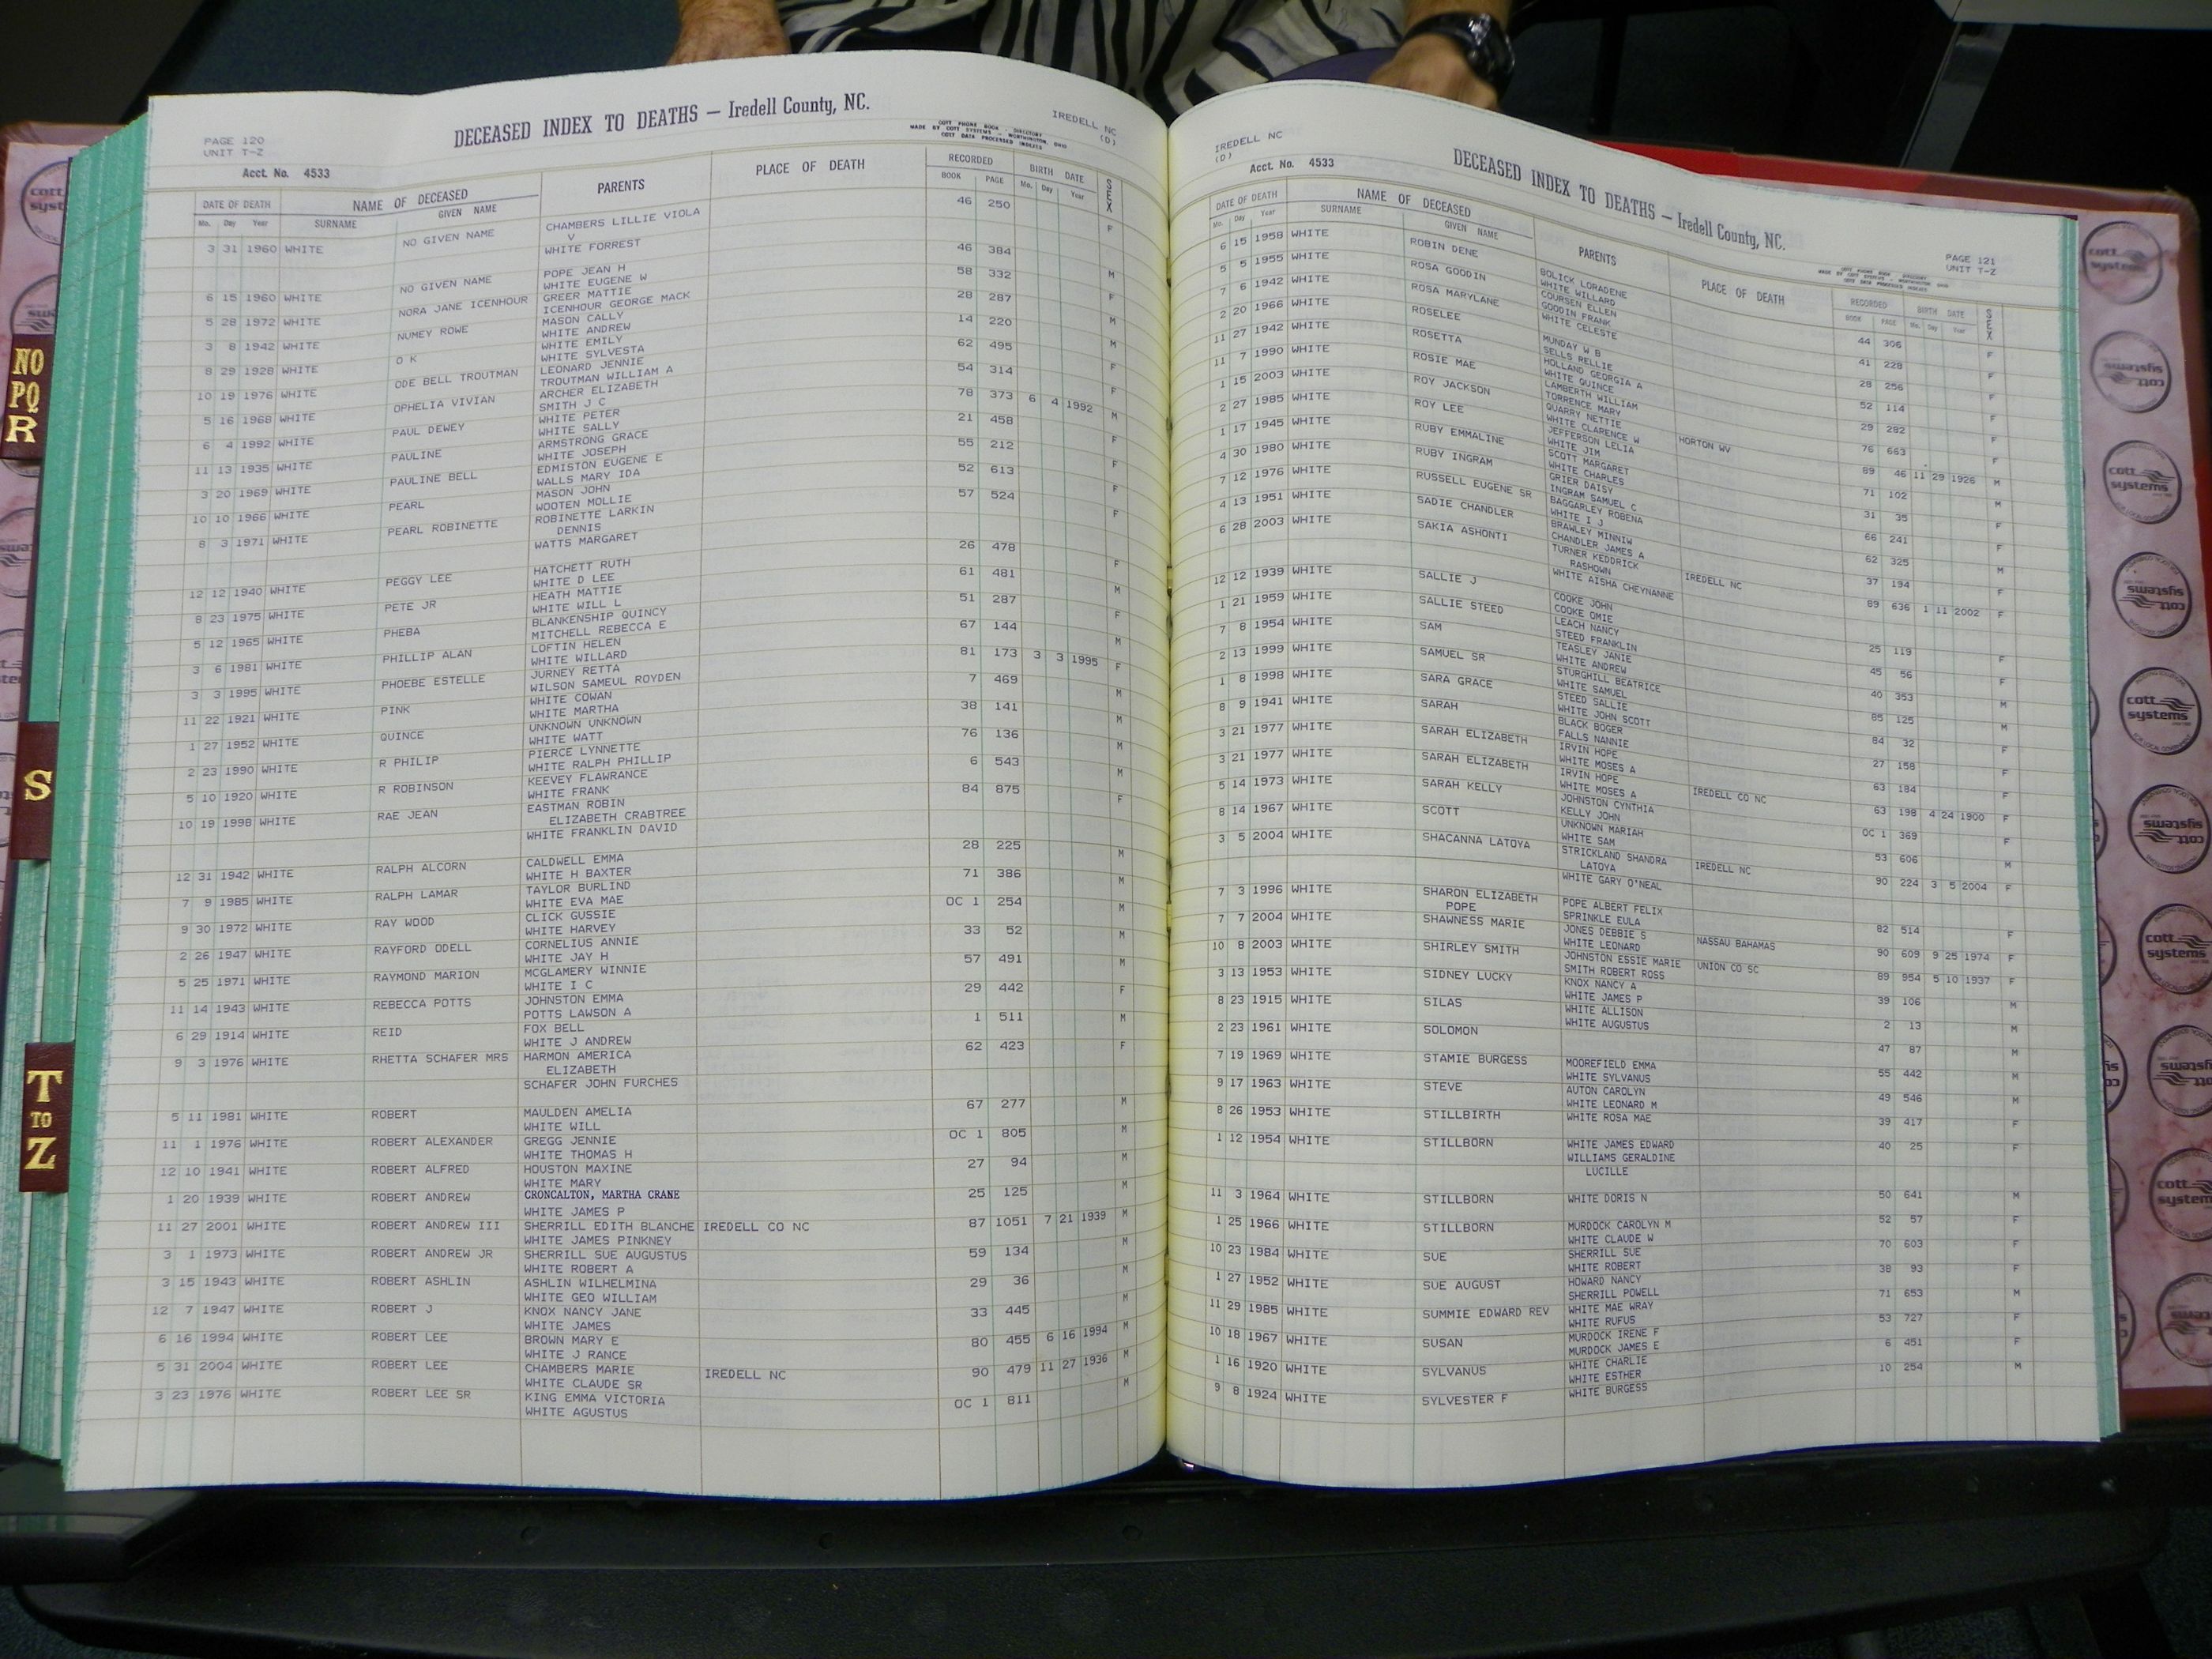 PAGE 120
UNIT T-Z
DECEASED INDEX TO DEATHS — Iredell County, NC.
COTT PHONE BOOK - DIRECTORY
MADE BY COTT SYSTEMS — WORTHINGTON, OHIO
COTT DATA PROCESSED INDEXES
IREDELL NC
(D)
Acct. No. 4533
DATE OF DEATH NAME OF DECEASED PARENTS PLACE OF DEATH RECORDED BIRTH DATE SEX
Mo. Day Year SURNAME GIVEN NAME BOOK PAGE Mo. Day Year
3 31 1960 WHITE NO GIVEN NAME CHAMBERS LILLIE VIOLA 46 250 F
V
WHITE FORREST
6 15 1960 WHITE NO GIVEN NAME POPE JEAN H 46 384 M
WHITE EUGENE W
5 28 1972 WHITE NORA JANE ICENHOUR GREER MATTIE 58 332 F
ICENHOUR GEORGE MACK
3 8 1942 WHITE NUMEY ROWE MASON CALLY 28 287 M
WHITE ANDREW
8 29 1928 WHITE O K WHITE EMILY 14 220 M
WHITE SYLVESTA
10 19 1976 WHITE ODE BELL TROUTMAN LEONARD JENNIE 62 495 F
TROUTMAN WILLIAM A
5 16 1968 WHITE OPHELIA VIVIAN ARCHER ELIZABETH 54 314 F
SMITH J C
6 4 1992 WHITE PAUL DEWEY WHITE PETER 78 373 6 4 1992 M
WHITE SALLY
11 13 1935 WHITE PAULINE ARMSTRONG GRACE 21 458 F
WHITE JOSEPH
3 20 1969 WHITE PAULINE BELL EDMISTON EUGENE E 55 212 F
WALLS MARY IDA
10 10 1966 WHITE PEARL MASON JOHN 52 613 F
WOOTEN MOLLIE
8 3 1971 WHITE PEARL ROBINETTE ROBINETTE LARKIN 57 524 F
DENNIS
WATTS MARGARET
12 12 1940 WHITE PEGGY LEE HATCHETT RUTH 26 478 F
WHITE D LEE
8 23 1975 WHITE PETE JR HEATH MATTIE 61 481 M
WHITE WILL L
5 12 1965 WHITE PHEBA BLANKENSHIP QUINCY 51 287 F
MITCHELL REBECCA E
3 6 1981 WHITE PHILLIP ALAN LOFTIN HELEN 67 144 M
WHITE WILLARD
3 3 1995 WHITE PHOEBE ESTELLE JURNEY RETTA 81 173 3 3 1995 F
WILSON SAMEUL ROYDEN
11 22 1921 WHITE PINK WHITE COWAN 7 469 M
WHITE MARTHA
1 27 1952 WHITE QUINCE UNKNOWN UNKNOWN 38 141 M
WHITE WATT
2 23 1990 WHITE R PHILIP PIERCE LYNNETTE 76 136 M
WHITE RALPH PHILLIP
5 10 1920 WHITE R ROBINSON KEEVEY FLAWRANCE 6 543 M
WHITE FRANK
10 19 1998 WHITE RAE JEAN EASTMAN ROBIN 84 875 F
ELIZABETH CRABTREE
WHITE FRANKLIN DAVID
12 31 1942 WHITE RALPH ALCORN CALDWELL EMMA 28 225 M
WHITE H BAXTER
7 9 1985 WHITE RALPH LAMAR TAYLOR BURLIND 71 386 M
WHITE EVA MAE
9 30 1972 WHITE RAY WOOD CLICK GUSSIE OC 1 254 M
WHITE HARVEY
2 26 1947 WHITE RAYFORD ODELL CORNELIUS ANNIE 33 52 M
WHITE JAY H
5 25 1971 WHITE RAYMOND MARION MCGLAMERY WINNIE 57 491 M
WHITE I C
11 14 1943 WHITE REBECCA POTTS JOHNSTON EMMA 29 442 F
POTTS LAWSON A
6 29 1914 WHITE REID FOX BELL 1 511 M
WHITE J ANDREW
9 3 1976 WHITE RHETTA SCHAFER MRS HARMON AMERICA 62 423 F
ELIZABETH
SCHAFER JOHN FURCHES
5 11 1981 WHITE ROBERT MAULDEN AMELIA 67 277 M
WHITE WILL
11 1 1976 WHITE ROBERT ALEXANDER GREGG JENNIE OC 1 805 M
WHITE THOMAS H
12 10 1941 WHITE ROBERT ALFRED HOUSTON MAXINE 27 94 M
WHITE MARY
1 20 1939 WHITE ROBERT ANDREW CRONCALTON, MARTHA CRANE 25 125 M
WHITE JAMES P
11 27 2001 WHITE ROBERT ANDREW III SHERRILL EDITH BLANCHE IREDELL CO NC 87 1051 7 21 1939 M
WHITE JAMES PINKNEY
3 1 1973 WHITE ROBERT ANDREW JR SHERRILL SUE AUGUSTUS 59 134 M
WHITE ROBERT A
3 15 1943 WHITE ROBERT ASHLIN ASHLIN WILHELMINA 29 36 M
WHITE GEO WILLIAM
12 7 1947 WHITE ROBERT J KNOX NANCY JANE 33 445 M
WHITE JAMES
6 16 1994 WHITE ROBERT LEE BROWN MARY E 80 455 6 16 1994 M
WHITE J RANCE
5 31 2004 WHITE ROBERT LEE CHAMBERS MARIE IREDELL NC 90 479 11 27 1936 M
WHITE CLAUDE SR
3 23 1976 WHITE ROBERT LEE SR KING EMMA VICTORIA OC 1 811 M
WHITE AGUSTUS
IREDELL NC
(D)
DECEASED INDEX TO DEATHS — Iredell County, NC.
COTT PHONE BOOK - DIRECTORY
MADE BY COTT SYSTEMS — WORTHINGTON, OHIO
COTT DATA PROCESSED INDEXES
PAGE 121
UNIT T-Z
Acct. No. 4533
DATE OF DEATH NAME OF DECEASED PARENTS PLACE OF DEATH RECORDED BIRTH DATE SEX
Mo. Day Year SURNAME GIVEN NAME BOOK PAGE Mo. Day Year
6 15 1958 WHITE ROBIN DENE BOLICK LORADENE 44 306 F
WHITE WILLARD
5 5 1955 WHITE ROSA GOODIN COURSEN ELLEN 41 228 F
GOODIN FRANK
7 6 1942 WHITE ROSA MARYLANE WHITE CELESTE 28 256 F
2 20 1966 WHITE ROSELEE MUNDAY W B 52 114 F
SELLS RELLIE
11 27 1942 WHITE ROSETTA HOLLAND GEORGIA A 29 282 F
WHITE QUINCE
11 7 1990 WHITE ROSIE MAE LAMBERTH WILLIAM 76 663 F
TORRENCE MARY
1 15 2003 WHITE ROY JACKSON QUARRY NETTIE HORTON WV 89 46 11 29 1926 M
WHITE CLARENCE W
2 27 1985 WHITE ROY LEE JEFFERSON LELIA 71 102 M
WHITE JIM
1 17 1945 WHITE RUBY EMMALINE SCOTT MARGARET 31 35 F
WHITE CHARLES
4 30 1980 WHITE RUBY INGRAM GRIER DAISY 66 241 F
INGRAM SAMUEL C
7 12 1976 WHITE RUSSELL EUGENE SR BAGGARLEY ROBENA 62 325 M
WHITE I J
4 13 1951 WHITE SADIE CHANDLER BRAWLEY MINNIW 37 194 F
CHANDLER JAMES A
6 28 2003 WHITE SAKIA ASHONTI TURNER KEDDRICK IREDELL NC 89 636 1 11 2002 F
RASHOWN
WHITE AISHA CHEYNANNE
12 12 1939 WHITE SALLIE J COOKE JOHN 25 119 F
COOKE OMIE
1 21 1959 WHITE SALLIE STEED LEACH NANCY 45 56 F
STEED FRANKLIN
7 8 1954 WHITE SAM TEASLEY JANIE 40 353 M
WHITE ANDREW
2 13 1999 WHITE SAMUEL SR STURGHILL BEATRICE 85 125 M
WHITE SAMUEL
1 8 1998 WHITE SARA GRACE STEED SALLIE 84 32 F
WHITE JOHN SCOTT
8 9 1941 WHITE SARAH BLACK BOGER 27 158 F
FALLS NANNIE
3 21 1977 WHITE SARAH ELIZABETH IRVIN HOPE 63 184 F
WHITE MOSES A
3 21 1977 WHITE SARAH ELIZABETH IRVIN HOPE IREDELL CO NC 63 198 4 24 1900 F
WHITE MOSES A
5 14 1973 WHITE SARAH KELLY JOHNSTON CYNTHIA OC 1 369 F
KELLY JOHN
8 14 1967 WHITE SCOTT UNKNOWN MARIAH 53 606 M
WHITE SAM
3 5 2004 WHITE SHACANNA LATOYA STRICKLAND SHANDRA IREDELL NC 90 224 3 5 2004 F
LATOYA
WHITE GARY O'NEAL
7 3 1996 WHITE SHARON ELIZABETH POPE ALBERT FELIX 82 514 F
POPE SPRINKLE EULA
7 7 2004 WHITE SHAWNESS MARIE JONES DEBBIE S NASSAU BAHAMAS 90 609 9 25 1974 F
WHITE LEONARD
10 8 2003 WHITE SHIRLEY SMITH JOHNSTON ESSIE MARIE UNION CO SC 89 954 5 10 1937 F
SMITH ROBERT ROSS
3 13 1953 WHITE SIDNEY LUCKY KNOX NANCY A 39 106 M
WHITE JAMES P
8 23 1915 WHITE SILAS WHITE ALLISON 2 13 M
WHITE AUGUSTUS
2 23 1961 WHITE SOLOMON 47 87 M
7 19 1969 WHITE STAMIE BURGESS MOOREFIELD EMMA 55 442 M
WHITE SYLVANUS
9 17 1963 WHITE STEVE AUTON CAROLYN 49 546 M
WHITE LEONARD M
8 26 1953 WHITE STILLBIRTH WHITE ROSA MAE 39 417 F
1 12 1954 WHITE STILLBORN WHITE JAMES EDWARD 40 25 F
WILLIAMS GERALDINE
LUCILLE
11 3 1964 WHITE STILLBORN WHITE DORIS N 50 641 M
1 25 1966 WHITE STILLBORN MURDOCK CAROLYN M 52 57 F
WHITE CLAUDE W
10 23 1984 WHITE SUE SHERRILL SUE 70 603 F
WHITE ROBERT
1 27 1952 WHITE SUE AUGUST HOWARD NANCY 38 93 F
SHERRILL POWELL
11 29 1985 WHITE SUMMIE EDWARD REV WHITE MAE WRAY 71 653 M
WHITE RUFUS
10 18 1967 WHITE SUSAN MURDOCK IRENE F 53 727 F
MURDOCK JAMES E
1 16 1920 WHITE SYLVANUS WHITE CHARLIE 6 451 F
WHITE ESTHER
9 8 1924 WHITE SYLVESTER F WHITE BURGESS 10 254 M
NO
PQ
R
S
T
TO
Z
cott
systems